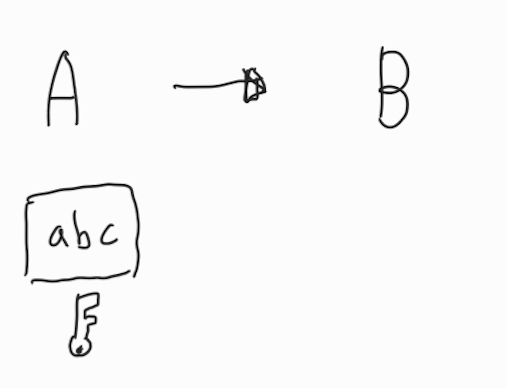 A B
abc